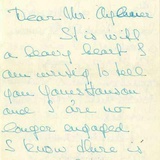 Dear Mr. Applewer
It is with
a heavy heart I
am writing to tell
you James Hanson
and I are no
longer engaged
I know there is